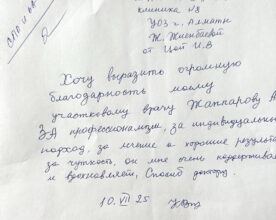 клиника №8
УОЗ г. Алматы
Ж. Жиенбаевой
от Цой И.В
Хочу выразить огромную
благодарность моему
участковому врачу Жаппарову А
за профессионализм, за индивидуальны
подход, за лечение и хорошие результа
за чуткость, он мне очень
и вдохновляет, Спасиб доктору.
10. VII 25